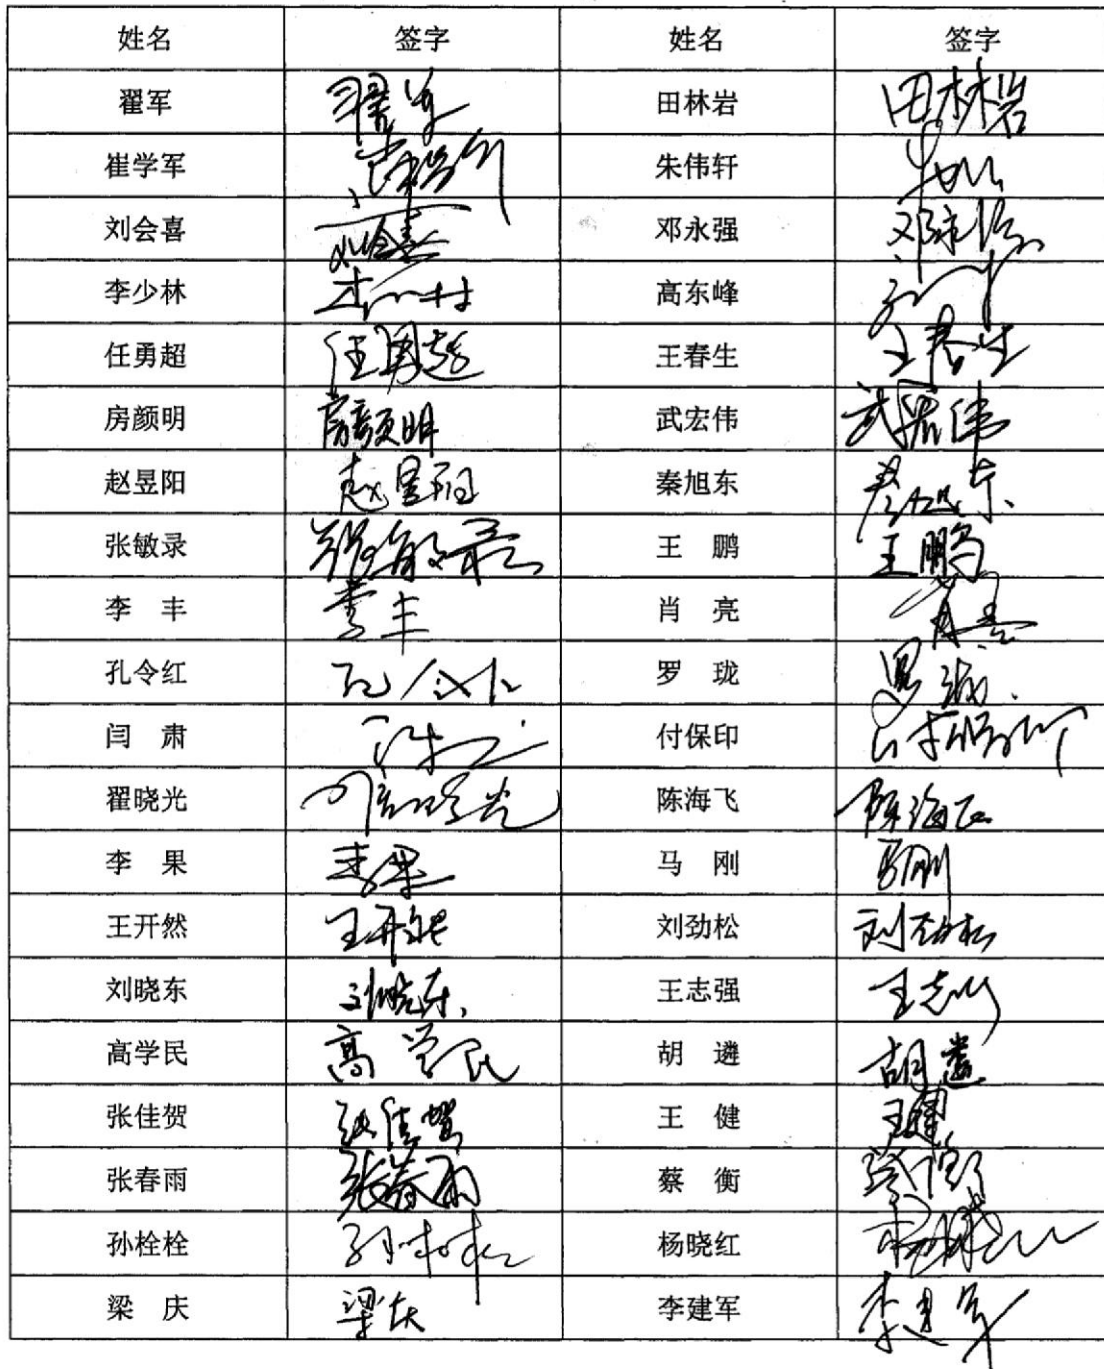 姓名 签字 姓名 签字
翟军 翟军 田林岩 田林岩
崔学军 朱伟轩
刘会喜 刘会喜 邓永强 邓永强
李少林 高东峰
任勇超 任勇超 王春生 王春生
房颜明 房颜明 武宏伟 武宏伟
赵昱阳 赵昱阳 秦旭东 秦旭东
张敏录 张敏录 王 鹏 王鹏
李 丰 李丰 肖 亮 肖亮
孔令红 孔令红 罗 珑
闫 肃 付保印 付保印
翟晓光 翟晓光 陈海飞 陈海飞
李 果 李果 马 刚 马刚
王开然 王开然 刘劲松 刘劲松
刘晓东 刘晓东 王志强 王志强
高学民 高学民 胡 遴 胡遴
张佳贺 张佳贺 王 健 王健
张春雨 张春雨 蔡 衡 蔡衡
孙栓栓 孙栓栓 杨晓红 杨晓红
梁 庆 梁庆 李建军 李建军